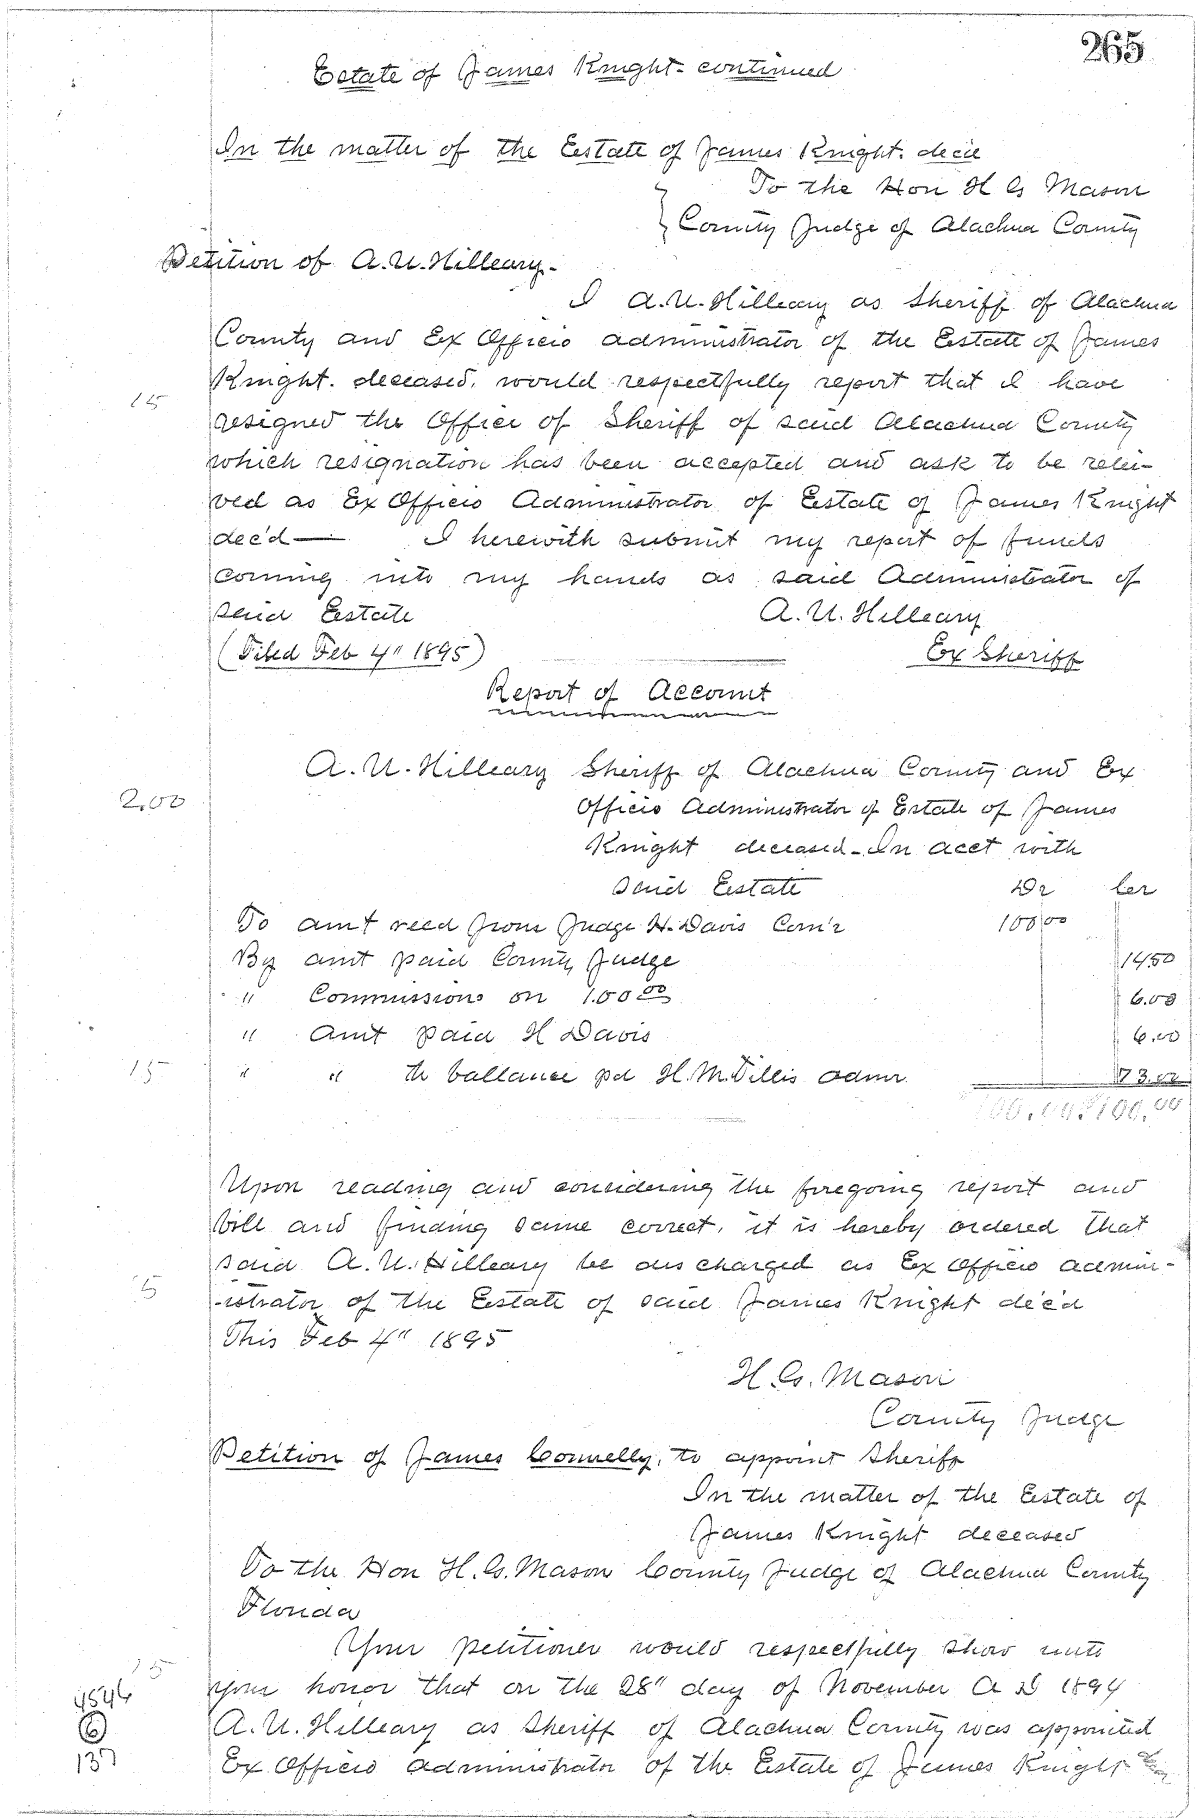 265
Estate of James Knight - continued
In the matter of the Estate of James Knight. dec'd
To the Hon H G Mason
County Judge of Alachua County
Petition of A.U. Hilleary-
I A.U. Hilleary as Sheriff of Alachua
County and Ex Officio administrator of the Estate of James
Knight. deceased, would respectfully report that I have
15
resigned the Office of Sheriff of said Alachua County
which resignation has been accepted and ask to be relei-
ved as Ex Officio Administrator of Estate of James Knight
dec'd — I herewith submit my report of funds
coming into my hands as said Administrator of
said Estate A.U. Hilleary
(Filed Feb 4" 1895) Ex Sheriff
Report of Account
A.U. Hilleary Sheriff of Alachua County and Ex
2,00
Officio Administrator of Estate of James
Knight deceased - In acct with
said Estate Dr Cer
To amt recd from Judge H. Davis Com'r 100 00
By amt paid County Judge 14.50
" Commissions on 100 00 6.00
" Amt paid H Davis 6.00
15 " " th ballance pd H.M. Tillis admr. 73.02
100.00 $100.00
Upon reading and considering the foregoing report and
bill and finding same correct, it is hereby ordered that
said A.U. Hilleary be discharged as Ex Officio admin-
15
-istrator of the Estate of said James Knight dec'd
This Feb 4" 1895
H.G. Mason
County Judge
Petition of James Connelly, to appoint Sheriff
In the matter of the Estate of
James Knight deceased
To the Hon H.G. Mason County Judge of Alachua County
Florida
Your petitioner would respectfully show unto
15
your honor that on the 28" day of November A D 1894
A.U. Hilleary as Sheriff of Alachua County was appointed
Ex Officio administrator of the Estate of James Knight
4546
6
137